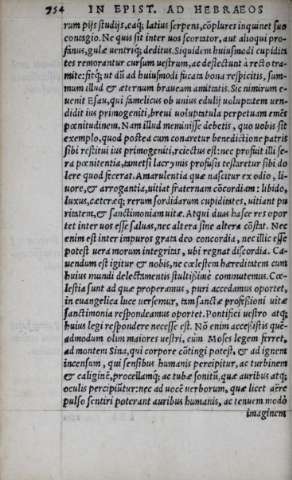 754 IN EPIST. AD HEBRAEOS
rum pijs studijs, eaq; latius serpens, cōplures inquinet suo
cōtagio. Ne quis sit inter uos scortator, aut alioqui pro-
fanus, gulæ uentriq; deditus. Siquidem huiusmodi cupidita
tes remorantur cursum uestrum, ac deflectunt à recto tra-
mite: fitq; ut dū ad huiusmodi fucata bona respicitis, sum-
mum illud & æternum braueum amittatis. Sic nimirum e-
uenit Esau, qui famelicus ob unius edulij uoluptatem uen-
didit ius primogeniti, breui uoluptatula perpetuam emēs
pœnitudinem. Nam illud meminisse debetis, quo uobis sit
exemplo, quod postea cum conaretur benedictione patris
sibi restitui ius primogeniti, reiectus est: nec profuit illi se-
ra pœnitentia, tametsi lacrymis profusis testaretur sibi do-
lere quod fecerat. Amarulentia quæ nascitur ex odio, li-
uore, & arrogantia, uitiat fraternam cōcordiam: libido,
luxus, cæteræq; rerum sordidarum cupiditates, uitiant pu
ritatem, & sanctimoniam uitæ. Atqui duas hasce res opor
tet inter uos esse saluas, nec altera sine altera cōstat. Nec
enim est inter impuros grata deo concordia, nec illic esse
potest uera morum integritas, ubi regnat discordia. Ca-
uendum est igitur & nobis, ne cœlestem hæreditatem cum
huius mundi delectamentis stultissime commutemus. Cœ-
lestia sunt ad quæ properamus, puri accedamus oportet,
in euangelica luce uersemur, tam sanctæ professioni uitæ
sanctimonia respondeamus oportet. Pontifici uestro atq;
huius legi respondere necesse est. Nō enim accessistis quē-
admodum olim maiores uestri, cùm Moses legem ferret,
ad montem Sina, qui corpore cōtingi potest, & ad ignem
incensum, qui sensibus humanis percipitur, ac turbinem
& caliginē, procellamq; ac tubæ sonitū, quæ auribus atq;
oculis percipiūtur: nec ad uocē uerborum, quæ licet aëre
pulso sentiri poterant auribus humanis, ac tenuem modò
imaginem